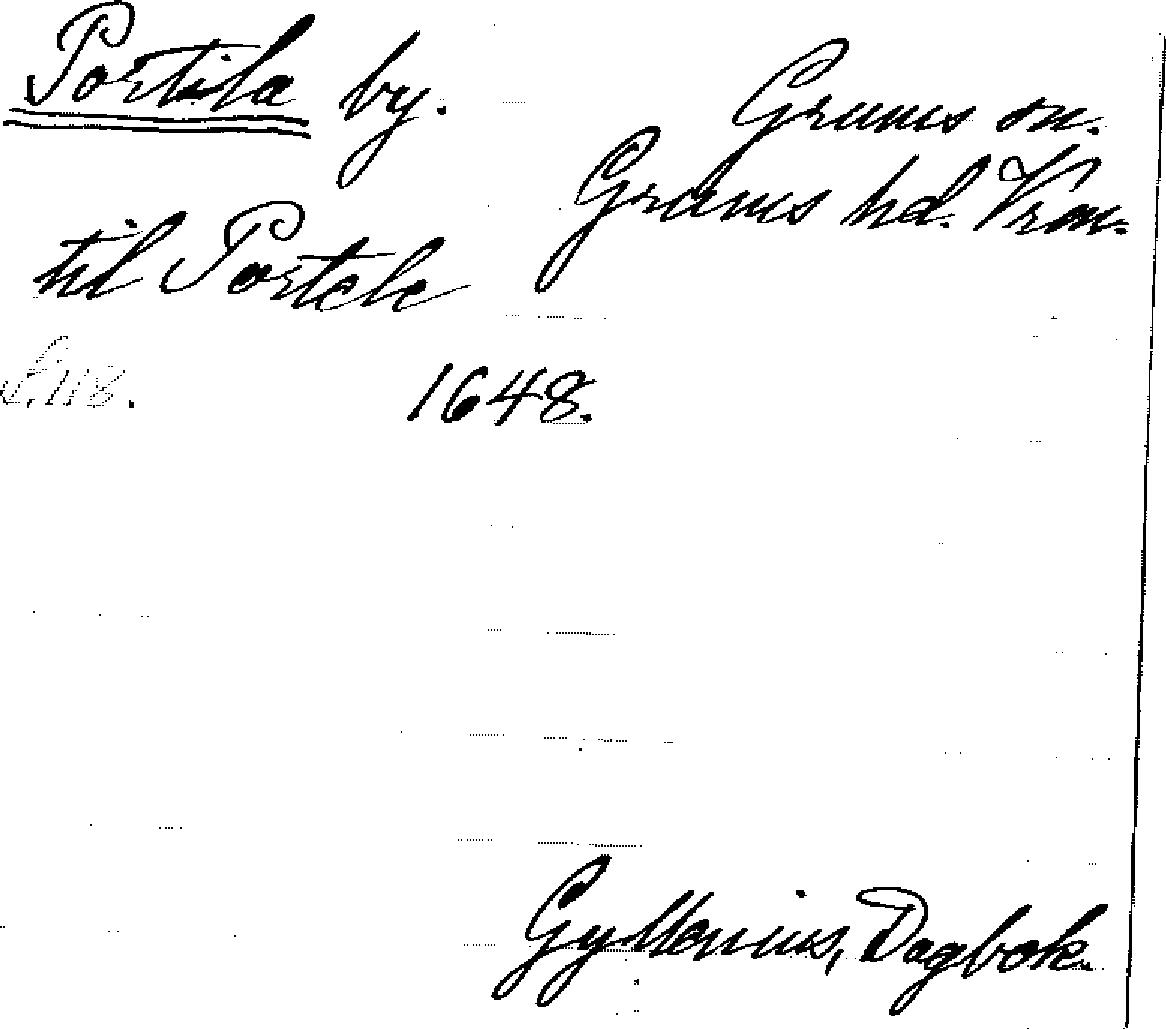 Portila by.
Grums sn.
Grums hd. Vrm.
til Portele
s. 118.
1648.
Gyllenius, Dagbok.